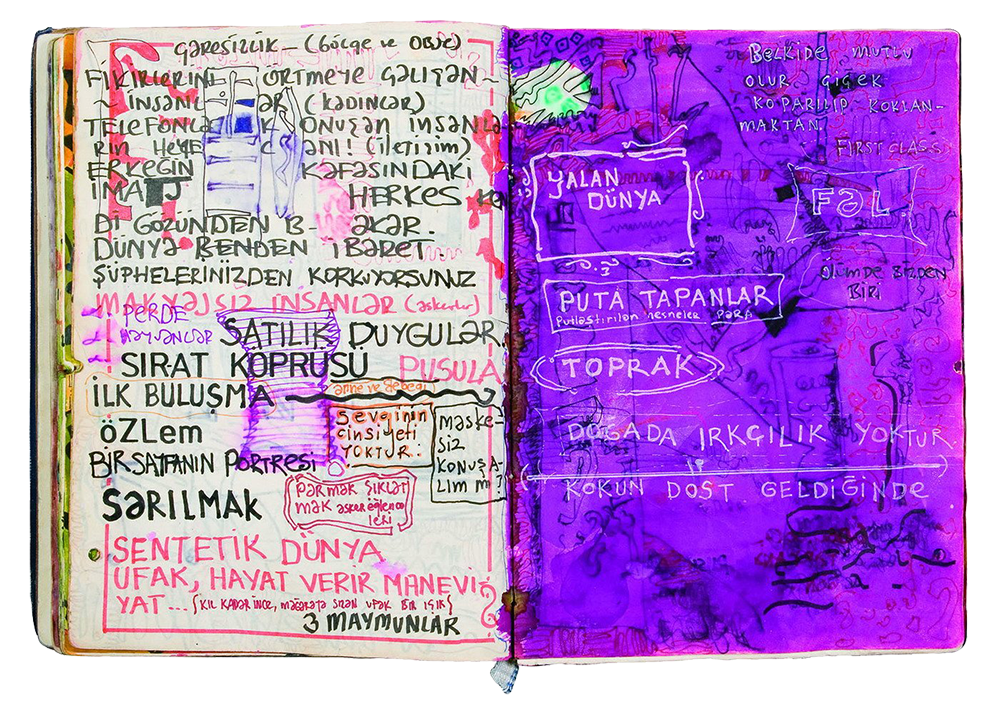 ÇƏRESİZLİK – (Gölge ve OBJE)
FİKİRLERİNİ ÖRTMEYE ÇƏLIŞƏN
İNSƏNL ƏR (KƏDINLƏR)
TELEFONLƏ K ONUŞƏN İNSƏNLƏ
RIN HEYE C ƏNI! (iLETiŞiM)
ERKEĞİN KƏFƏSINDAKİ
İMAJ HERKES KEN
Dİ GÖZÜNDEN B- ƏKƏR.
DÜNYƏ BENDEN İBƏRET.
ŞÜPHELERİNİZDEN KORKUYORSUNUZ
MAKYƏJSIZ İNSANLƏR (askerler)
PERDE
HƏYVƏNLƏR
SATILIK DUYGULƏR.
SIRAT KÖPRÜSÜ PUSULA
İLK BULUŞMA anne ve Bebeği
ÖZLem
BİR SAYFANIN PORTRESİ
sevginin
cinsiyeti
YOKTUR.
məske-
siz
KONUŞA-
LIM MI?
SƏRILMAK
PƏRMƏK ŞIKLƏT
MƏK asker eğlence
leri
SENTETİK DÜNYA
UFAK, HAYAT VERIR MANEVİ
YAT... {KIL KADƏR İNCE, MƏĞƏRƏYƏ SIZAN UFAK BİR IŞIK}
3 MAYMUNLAR
BELKİDE MUTLU
OLUR ÇİÇEK
KOPARILIP KOKLAN-
MAKTAN.
FIRST CLASS
YALAN
DÜNYA
FƏL.
ÖLÜMDE BİZDEN
BİRİ
PUTA TAPANLAR
Putləştırılən nesneler PƏRA
TOPRAK
DOĞADA IRKÇILIK YOKTUR.
KOKUN DOST GELDİĞİNDE